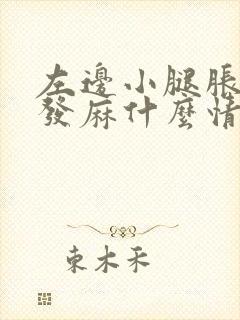 左邊小腿脹
發麻什麼情
東木禾